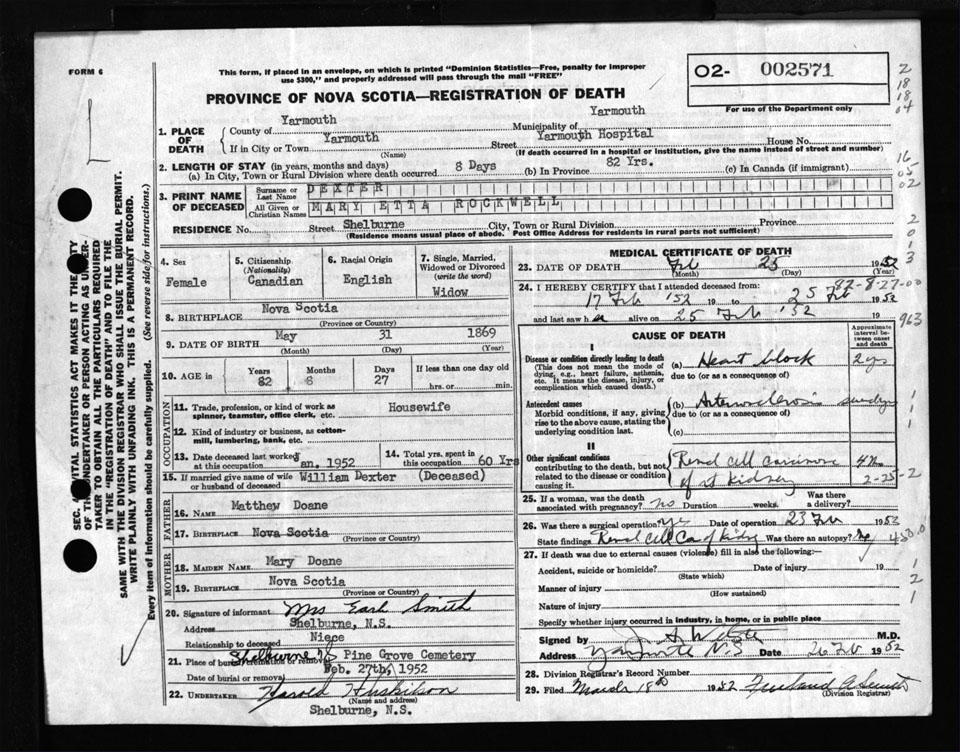 FORM 6
This form, if placed in an envelope, on which is printed "Dominion Statistics—Free, penalty for improper
use $300," and properly addressed will pass through the mail "FREE"
02- 002571
For use of the Department only
PROVINCE OF NOVA SCOTIA—REGISTRATION OF DEATH
1. PLACE OF DEATH
County of Yarmouth Municipality of Yarmouth
If in City or Town Yarmouth Street Yarmouth Hospital House No.
(Name) (If death occurred in a hospital or institution, give the name instead of street and number)
2. LENGTH OF STAY (in years, months and days)
(a) In City, Town or Rural Division where death occurred 8 Days (b) In Province 82 Yrs. (c) In Canada (if immigrant)
3. PRINT NAME OF DECEASED
Surname or Last Name DEXTER
All Given or Christian Names MARY ETTA ROCKWELL
RESIDENCE No. Street Shelburne City, Town or Rural Division Province
(Residence means usual place of abode. Post Office Address for residents in rural parts not sufficient)
4. Sex
Female
5. Citizenship
(Nationality)
Canadian
6. Racial Origin
English
7. Single, Married,
Widowed or Divorced
(write the word)
Widow
8. BIRTHPLACE Nova Scotia
(Province or Country)
9. DATE OF BIRTH May 31 1869
(Month) (Day) (Year)
10. AGE in Years Months Days If less than one day old
82 8 27 hrs. or min.
OCCUPATION
11. Trade, profession, or kind of work as
spinner, teamster, office clerk, etc. Housewife
12. Kind of industry or business, as cotton-
mill, lumbering, bank, etc.
13. Date deceased last worked
at this occupation Jan. 1952
14. Total yrs. spent in
this occupation 60 Yrs
15. If married give name of wife
or husband of deceased William Dexter (Deceased)
FATHER
16. NAME Matthew Doane
17. BIRTHPLACE Nova Scotia
(Province or Country)
MOTHER
18. MAIDEN NAME Mary Doane
19. BIRTHPLACE Nova Scotia
(Province or Country)
20. Signature of informant Mrs Earl Smith
Address Shelburne, N.S.
Relationship to deceased Niece
21. Place of burial, cremation or removal Shelburne NS Pine Grove Cemetery
Date of burial or removal Feb. 27th, 1952
22. UNDERTAKER Harold Huskilson
(Name and address)
Shelburne, N.S.
MEDICAL CERTIFICATE OF DEATH
23. DATE OF DEATH Feb 25 1952
(Month) (Day) (Year)
24. I HEREBY CERTIFY that I attended deceased from:
82-8-27-00
17 Feb '52 19 to 25 Feb 1952
and last saw her alive on 25 Feb '52 19
CAUSE OF DEATH
Approximate
interval be-
tween onset
and death
I
Disease or condition directly leading to death
(This does not mean the mode of
dying, e.g., heart failure, asthenia,
etc. It means the disease, injury, or
complication which caused death.)
(a) Heart block 2 yrs
due to (or as a consequence of)
Antecedent causes
Morbid conditions, if any, giving
rise to the above cause, stating the
underlying condition last.
(b) Arteriosclerosis
due to (or as a consequence of)
(c)
II
Other significant conditions
contributing to the death, but not
related to the disease or condition
causing it.
Renal cell carcinoma
of rt kidney
2-25-2
25. If a woman, was the death
associated with pregnancy? no Duration weeks. Was there a delivery?
26. Was there a surgical operation? yes Date of operation 23 Feb 1952
State findings Renal cell Ca of kidney Was there an autopsy? no
27. If death was due to external causes (violence) fill in also the following:—
Accident, suicide or homicide? Date of injury 19
(State which)
Manner of injury
(How sustained)
Nature of injury
Specify whether injury occurred in industry, in home, or in public place
Signed by M.D.
Address Yarmouth N.S Date 26 Feb 1952
28. Division Registrar's Record Number
29. Filed March 18th 1952 Freeland A Smith
(Division Registrar)
SEC. VITAL STATISTICS ACT MAKES IT THE DUTY
OF THE UNDERTAKER OR PERSON ACTING AS UNDER-
TAKER TO OBTAIN ALL THE PARTICULARS REQUIRED
IN THE "REGISTRATION OF DEATH" AND TO FILE THE
SAME WITH THE DIVISION REGISTRAR WHO SHALL ISSUE THE BURIAL PERMIT.
WRITE PLAINLY WITH UNFADING INK. THIS IS A PERMANENT RECORD.
Every item of information should be carefully supplied. (See reverse side for instructions.)
2
18
18
04
16
05
02
2
0
1
3
963
1
1
450.0
1
2
1